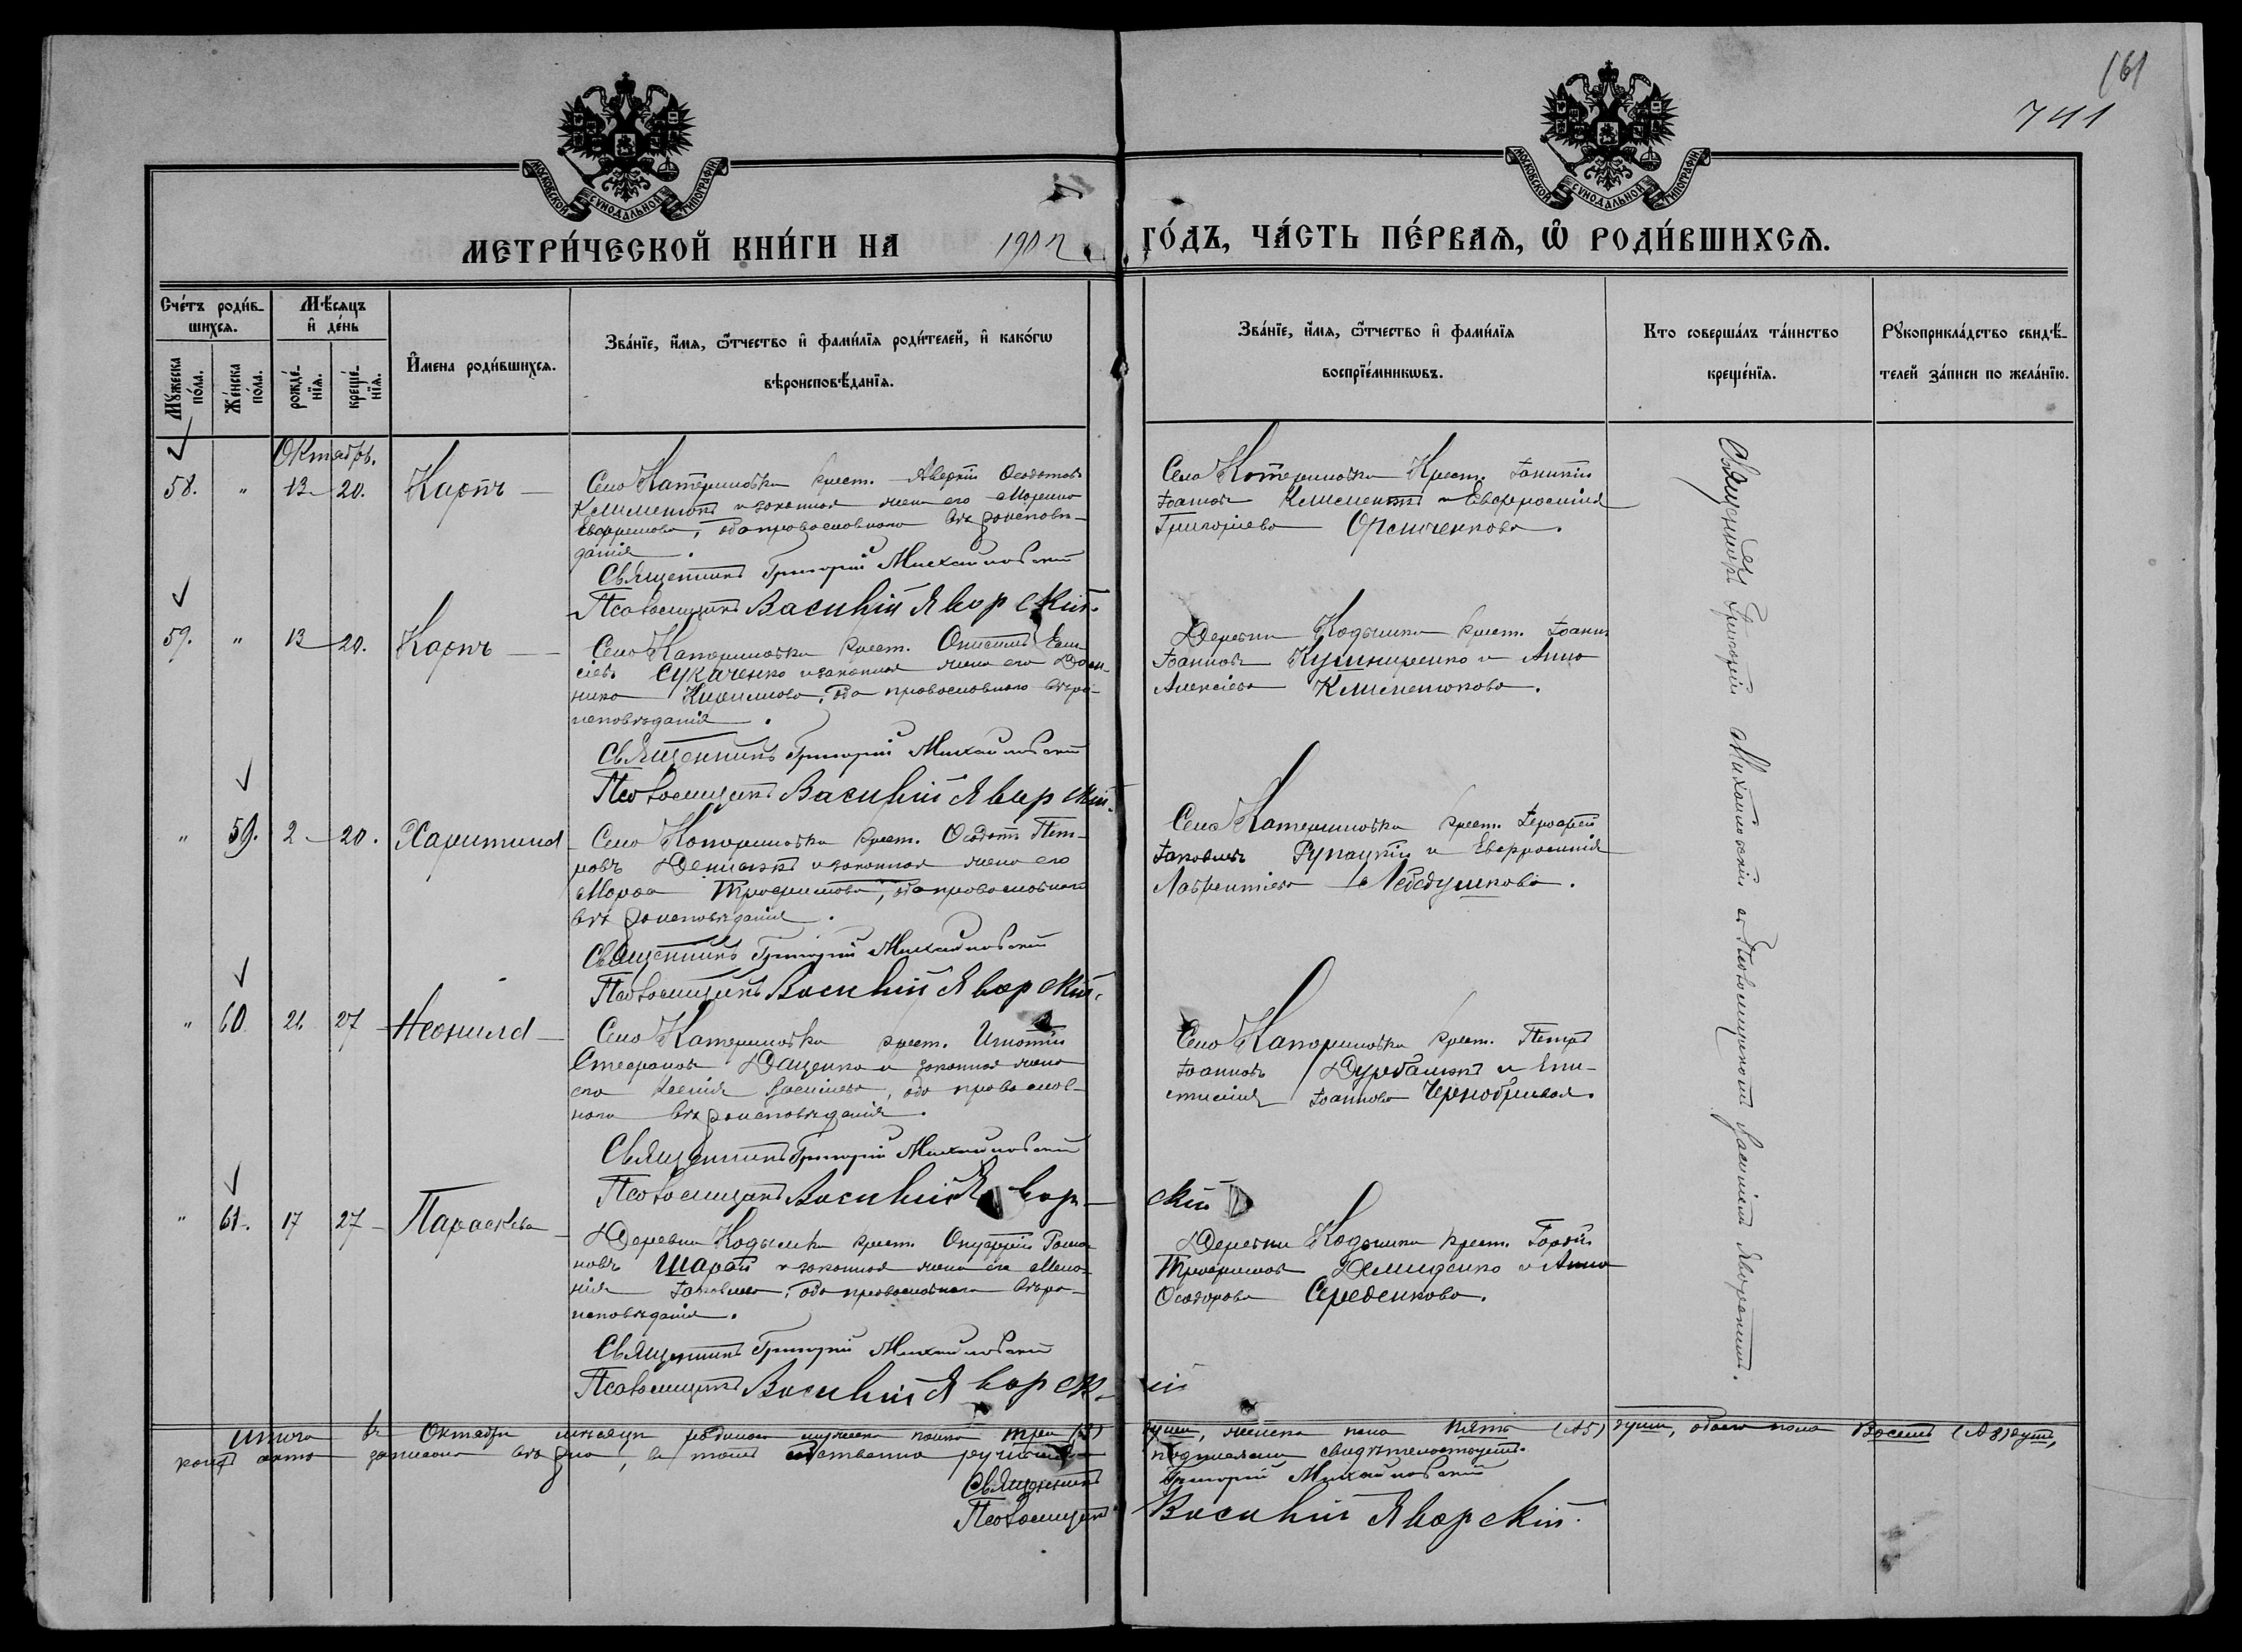 161
741
МОСКОВСКОЙ СѴНОДАЛЬНОЙ ТИПОГРАФІИ
МОСКОВСКОЙ СѴНОДАЛЬНОЙ ТИПОГРАФІИ
МЕТРИ́ЧЕСКОЙ КНИ́ГИ НА 1902 ГО́ДЪ, ЧА́СТЬ ПЕ́РВАѦ, Ѽ РОДИ́ВШИХСѦ.
Сче́тъ роди́в-
шихсѧ.
Мꙋ́жеска по́ла.
Же́нска по́ла.
Мѣ́сѧцъ
и҆ де́нь
рожде́-
нїѧ.
креще́-
нїѧ.
И҆мена роди́вшихсѧ.
Зва́нїе, и҆́мѧ, ѻ҆́тчество и҆ фами́лїѧ роди́телей, и҆ како́гѡ
вѣроисповѣ́данїѧ.
Зва́нїе, и҆́мѧ, ѻ҆́тчество и҆ фами́лїѧ
воспрїе́мникѡвъ.
Кто соверша́лъ та́инство
креще́нїѧ.
Рꙋкоприкла́дство свидѣ́-
телей за́писи по жела́нїю.
Октябрь.
58. " 13 - 20. Карпъ
Село Катериновка крест. Аверкій Ѳеодотовъ
Клименюкъ и законная жена его Марина
Евфремова, оба православнаго вѣроисповѣ-
данія.
Священникъ Григорій Михайловскій
Псаломщикъ Василій Яворскій.
Село Катериновка Крест. Іоаникій
Іоанновъ Клименюкъ и Евфросинія
Григоріева
59. " 13 - 20. Карпъ
Село Катериновка крест. Онисимъ Ели-
сіевъ Сукаченко и законная жена его Дом-
ника православнаго вѣро-
исповѣданія.
Священникъ Григорій Михайловскій
Псаломщикъ Василій Яворскій.
Деревни Кодымка крест. Іоаннъ
Іоанновъ Кушниренко и Анна
Алексіева Клименюкова.
" 59. 2 - 20. Харитина
Село Катериновка крест. Ѳеодотъ Пет-
ровъ и законная жена его
Марѳа Трофимова, оба православнаго
вѣроисповѣданія.
Священникъ Григорій Михайловскій
Псаломщикъ Василій Яворскій.
Село Катериновка крест. Іерофей
Іаковлевъ и Евфросинія
Лаврентіева Лебедушкова.
" 60. 26 27 - Неонила
Село Катериновка крест. Игнатій
Стефановъ Даценко и законная жена
его Ксенія Василіева, оба православ-
наго вѣроисповѣданія.
Священникъ Григорій Михайловскій
Псаломщикъ Василій Яворскій
Село Катериновка крест. Петръ
Іоанновъ и Ани-
стасія Іоаннова Чернобривая.
" 61. 17 27 - Параскева
Деревни Кодымка крест. Онуфрій Рома-
новъ Шарай и законная жена его Мела-
нія Іаковлева, оба православнаго вѣро-
исповѣданія.
Священникъ Григорій Михайловскій
Псаломщикъ Василій Яворскій
Деревни Кодымка крест. Гордій
Трофимовъ Демиденко и Анна
Ѳеодорова Середенкова.
Священникъ Григорій Михайловскій съ Псаломщикомъ Василіемъ Яворскимъ.
Итого въ Октябрѣ мѣсяцѣ родилось мужеска пола три (3) души, женска пола пять (5) души, обоего пола восемь (8) душъ,
актъ записанъ вѣрно, въ томъ собственно ручнымъ подписомъ свидѣтельствуемъ.
Священникъ Григорій Михайловскій
Псаломщикъ Василій Яворскій.